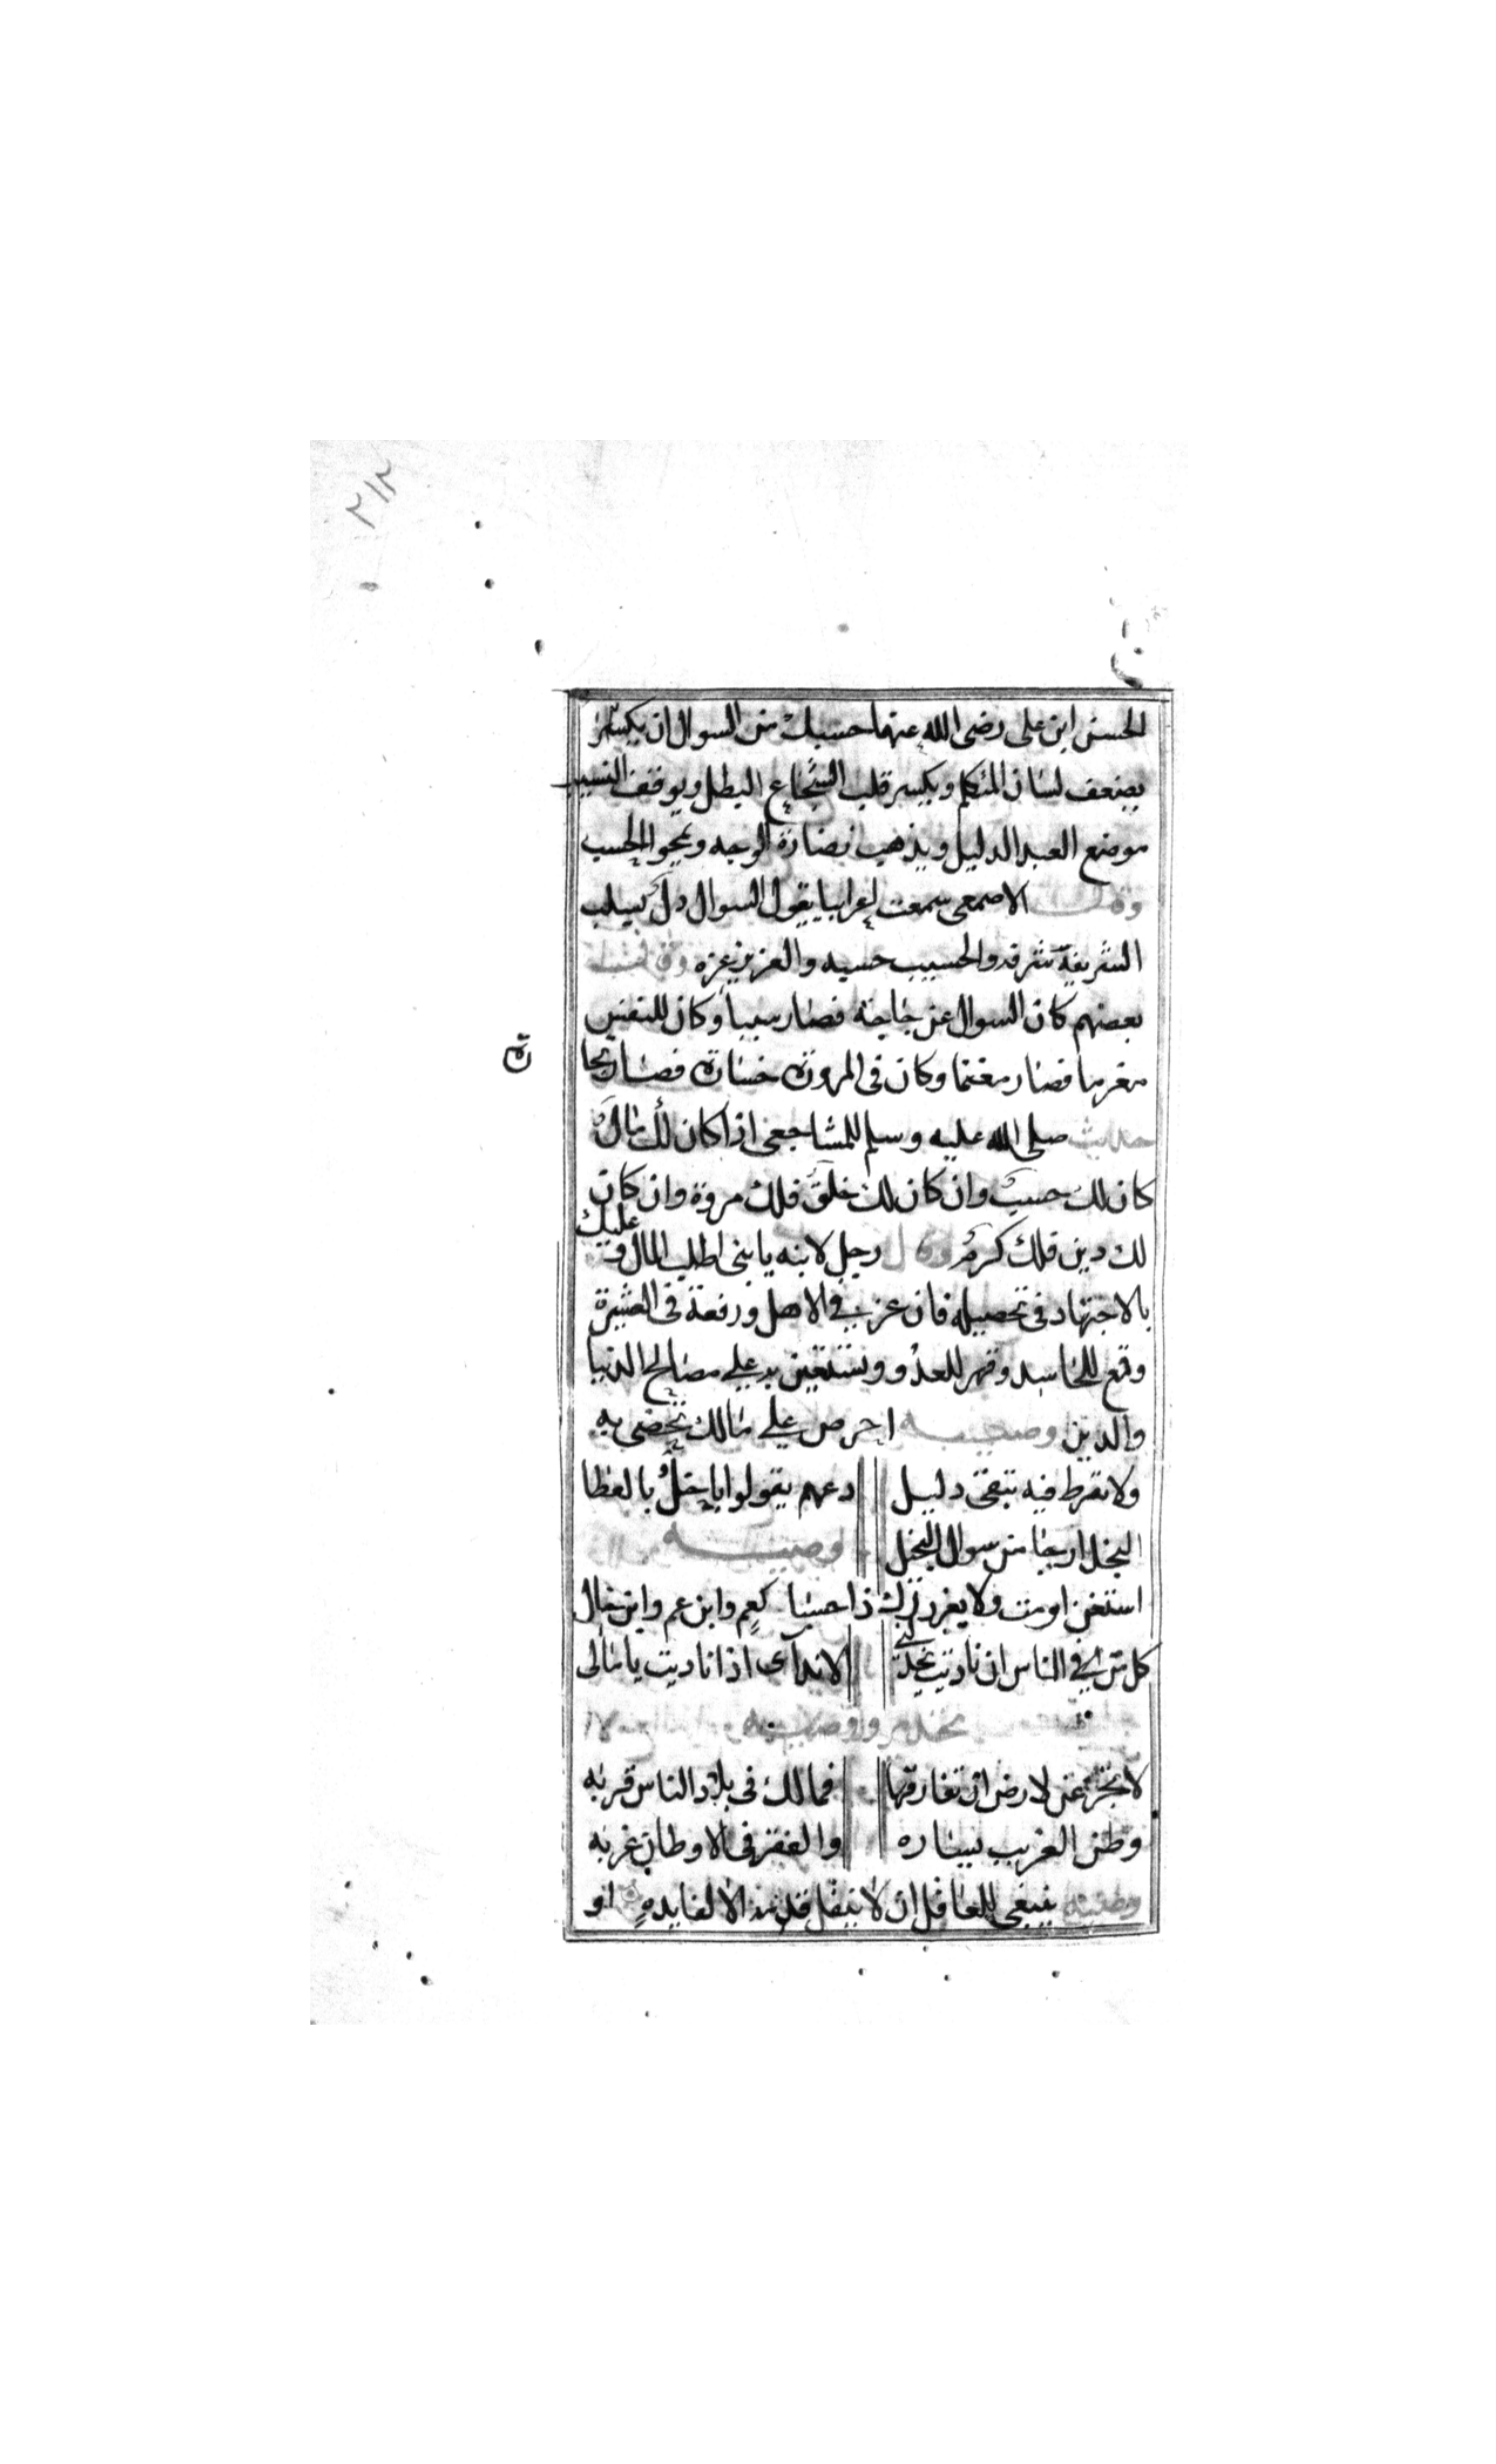 ٢١٢
الحسن ابن على رضى الله عنهما حسبك من السوال ان
يضعف لسان المتكلم ويكسر قلب الشجاع البطل ويوقف
موضع العبد الدليل ويذهب نضارة الوجه ويمحوا الحسب
وقال الاصمعى سمعت اعرابيا يقول السوال دل يسلب
الشريف شرفه والحسيب حسبه والعزيز عزه وقال
بعضهم كان السوال عن حاجة فصار سببا وكان للنفس
مغرما فصار مغنما وكان فى المروة خسارة فصار
حديث صلى الله عليه وسلم للمشاجعى اذا كان لك مال
كان لك حسب وان كان لك خلق فلك مروة وان كان
لك دين فلك كرم وقال رجل لابنه يا بنى اطلب المال وعليك
بالاجتهاد فى تحصيله فان عز فى الاهل ورفعة فى العشيرة
وقمع للحاسد وقهر للعدو وتستعين به على مصالح الدنيا
والدين وصية احرص على مالك تحضى به
ولا تفرط فيه تبقى دليل دعهم يقولوا باخل بالعطا
البخل ارجا من سوال البخيل وصية
استغن او مت ولا يغررك ذا حسبا كعم وابن عم وابن خال
كل من فى الناس ان ناديت الا نداى اذا ناديت يا مالى
لا تجزعن لارض ان تفارقها فمالك فى بلاد الناس قربه
وطن الغريب يساره والفقر فى الاوطان غربه
ينبغى للعاقل ان لا ينقل قدمه الا لفايدة او